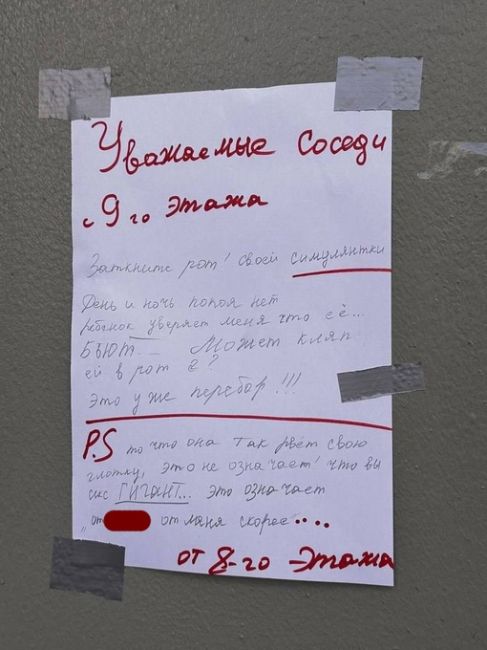 Уважаемые соседи
с 9 го этажа
Заткните рот! своей симулянтки
День и ночь покоя нет
Ребёнок уверяет меня что её...
БЬЮТ... Может кляп
ей в рот ?
Это уже перебор!!!
P.S то что она так рвёт свою
глотку, это не означает! что вы
секс ГИГАНТ... это означает
"от отманя скорее....
от 8-го этажа